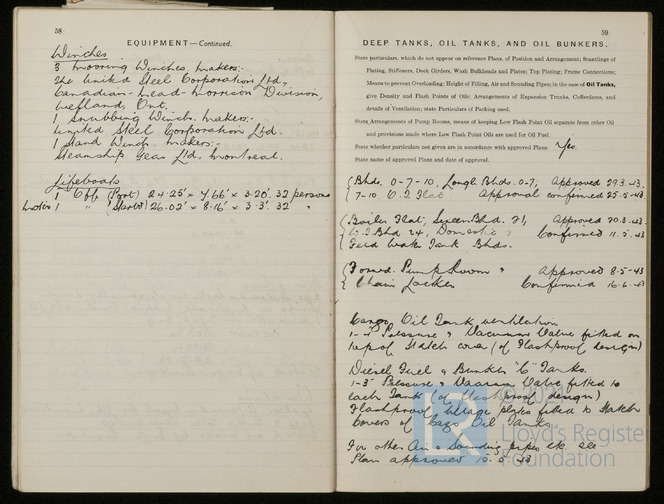 58
EQUIPMENT—Continued.
Winches
3 Mooring Winches, Makers:-
The United Steel Corporation Ltd,
Canadian-Mead-Morrison Division,
Welland, Ont.
1 Snubbing Winch. Makers:-
United Steel Corporation Ltd.
1 Hand Winch. Makers:-
Steamship Gear Ltd, Montreal.
Lifeboats
1 Off (Port) 24.25' × 7.66' × 3.20'. 32 persons
Motor 1 " (Starbd) 26.02' × 8.16' × 3.3'. 32 "
59
DEEP TANKS, OIL TANKS, AND OIL BUNKERS.
State particulars, which do not appear on reference Plans, of Position and Arrangement; Scantlings of
Plating, Stiffeners, Deck Girders, Wash Bulkheads and Plates; Top Plating; Frame Connections;
Means to prevent Overloading: Height of Filling, Air and Sounding Pipes; in the case of Oil Tanks,
give Density and Flash Points of Oils; Arrangements of Expansion Trunks, Cofferdams, and
details of Ventilation; state Particulars of Packing used.
State Arrangements of Pump Rooms, means of keeping Low Flash Point Oil separate from other Oil
and provisions made where Low Flash Point Oils are used for Oil Fuel.
State whether particulars not given are in accordance with approved Plans. Yes.
State name of approved Plans and date of approval.
Bhds. 0-7-10, Longl. Bhds. 0-7, Approved 29.3.43
7-10 O.T. Flat. Approval confirmed 25.5.43
Boiler Flat, Screen Bhd. 21, Approved 20.3.43
W.T. Bhd 24, Domestic & Confirmed 11.5.43
Feed Water Tank Bhds.
Forwd. Pump Room & Approved 8-5-43
Chain Locker Confirmed 16.6.43
Cargo Oil Tank ventilation
Pressure & Vacuum Valve fitted on
top of Hatch cover (of Flashproof design)
Diesel Fuel & Bunker "C" Tanks.
1-3" Pressure & Vacuum Valve fitted to
each Tank (of flashproof design)
Flashproof ullage plugs fitted to Hatch
Covers of Cargo Oil Tanks
For other Air & Sounding pipes etc. see
Plan approved 43
© 2021
LR
Lloyd's Register
Foundation